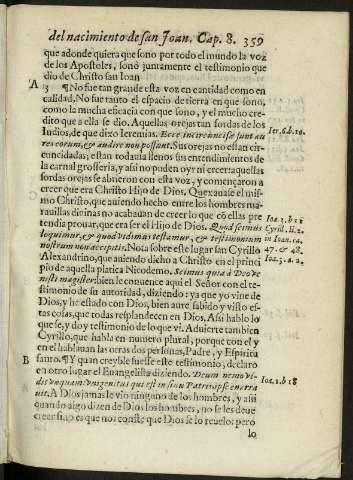 del nacimiento de san Joan. Cap. 8. 359
que adonde quiera que sono por todo el mundo la voz
de los Apostoles, sonó juntamente el testimonio que
dio de Christo san Iuan
A 13 ¶ No fue tan grande esta voz en cantidad como en
calidad, No fue tanto el espacio de tierra en que sono,
como la mucha eficacia con que sono, y el mucho cre-
dito que a ella se dio. Aquellas orejas tan sordas de los
Indios, de que dizo Ieremias. Ecce incircuncisæ sunt au
res eorum, & audire non possunt. Sus orejas no estan cir-
cuncidadas; estan todauia llenos sus entendimientos de
la carnal grosseria, y assi no puden oyr ni creer aquellas
sordas orejas se abrieron con esta voz, y començaron a
creer que era Christo Hijo de Dios. Quexauase el mis-
mo Christo, que auiendo hecho entre los hombres ma-
rauillas diuinas no acabauan de creer lo que cõ ellas pre
tendia prouar, que era ser el Hijo de Dios. Quod scimus
loquimur, & quod vidimus testamur, & testimonium
nostrum non accipitis. Nota sobre este lugar san Cyrillo
Alexandrino, que auiendo dicho a Christo en el princi
pio de aquella platica Nicodemo. Scimus quia à Deo ve
nisti magister; bien le conuence aqui el Señor con el te-
stimonio de su autoridad, diziendo: ya que yo vine de
Dios, y he estado con Dios, bien aure sabido y visto es-
tas cosas, que todas resplandecen en Dios. Assi hablo lo
que se, y doy testimonio de lo que vi. Aduierte tambien
Cyrillo, que habla en numero plural, porque con el y
en el hablauan las otras dos personas, Padre, y Espiritu
B santo. ¶ Y quan creyble fuesse este testimonio, declaro
en otro lugar el Euangelista diziendo. Deum nemo vi-
dit vnquam: vnigenitus qui est in sinu Patris ipse enarra
uit. A Dios jamas le vio ninguno de los hombres, y assi
quando algo dizen de Dios los hombres, no se les deue
creer sino es que nos conste que Dios se lo reuelo: pero
lo
Ier. 6. b. 10.
Ioa. 3. b. 11
Cyrill. li. 2.
in Ioan. ca.
47. & 48.
Ioa. 3. a. 2.
Ioa. 1. b 18